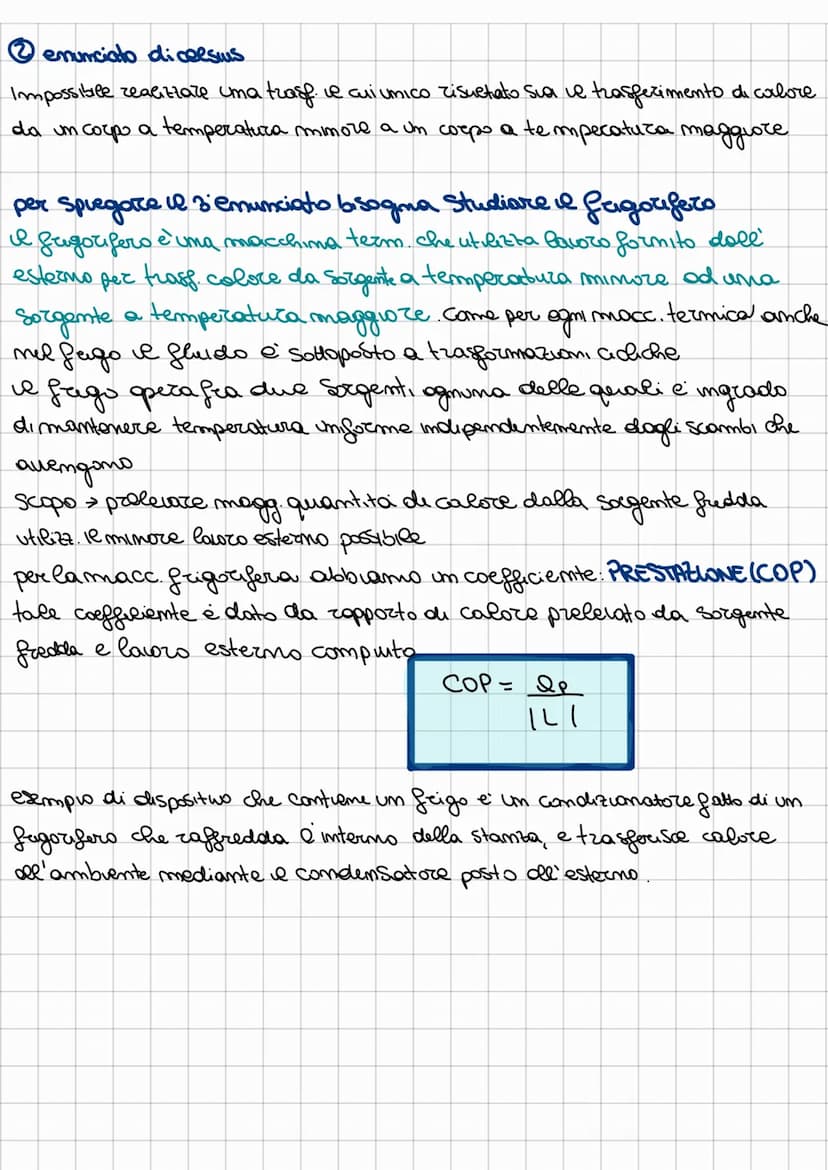 ② enunciato di celsius
Impossibile realizzare una trasf. il cui unico risultato sia il trasferimento di calore
da un corpo a temperatura minore a un corpo a temperatura maggiore
per spiegare il 3° enunciato bisogna studiare il frigorifero
il frigorifero è una macchina term. che utilizza lavoro fornito dall'
esterno per trasf. calore da sorgente a temperatura minore ad una
sorgente a temperatura maggiore. Come per ogni macc. termica anche
nel frigo il fluido è sottoposto a trasformazioni cicliche
il frigo opera fra due sorgenti ognuna delle quali è ingrado
di mantenere temperatura uniforme indipendentemente dagli scambi che
avengono
scopo → prelevare magg. quantità di calore dalla sorgente fredda
utilizz. il minore lavoro esterno possibile
per la macc. frigorifera abbiamo un coefficiente: PRESTAZIONE (COP)
tale coefficiente è dato da rapporto di calore prelevato da sorgente
fredda e lavoro esterno compiuto
COP = Qp / |L|
esempio di dispositivo che contiene un frigo è un condizionatore fatto di un
frigorifero che raffredda l'interno della stanza, e trasferisce calore
all'ambiente mediante il condensatore posto all'esterno.